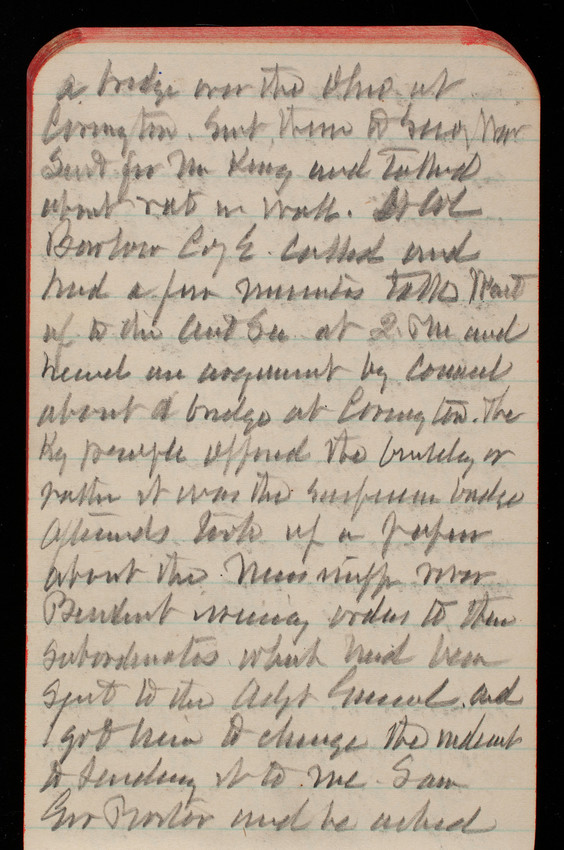 a bridge over the Ohio at
Covington. Sent them to Secy War
Sent for Mr King and talked
about rats in wall. Lt Col
Barlow C of E. called and
had a few minutes talk Went
up to the Act Sec at 2. PM and
heard an argument by counsel
about a bridge at Covington. The
Ky people opposed the building or
rather it was the suspension bridge
Afterwards took up a paper
about the Mississippi River
President issuing orders to their
subordinates which had been
sent to the Adjt General and
I got him to change the
to sending it to me. Saw
Gov Porter and he asked